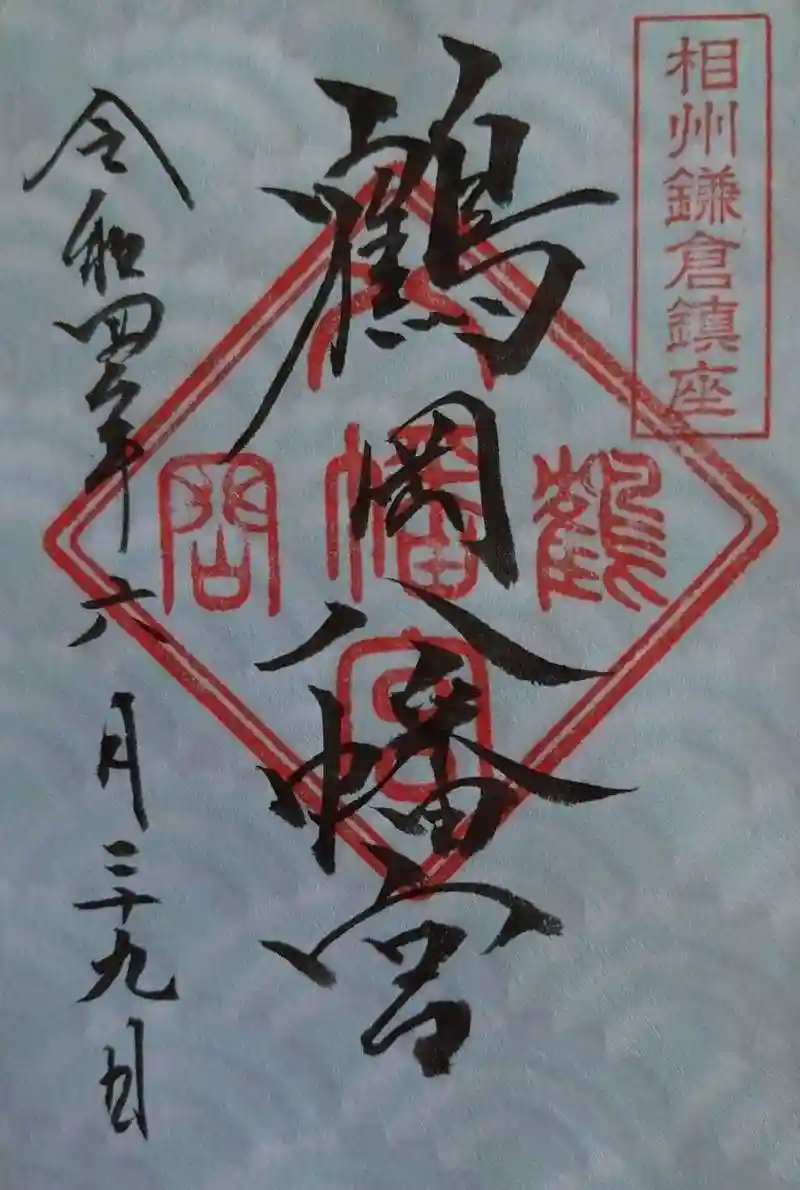 相州鎌倉鎮座
鶴岡八幡宮
鶴岡八幡宮
令和四年六月二十九日